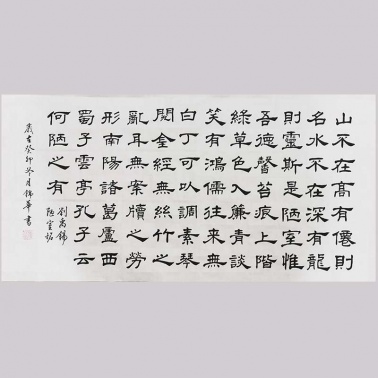 山不在高有僊則
名水不在深有龍
則靈斯是陋室惟
吾德馨苔痕上階
綠草色入簾青談
笑有鴻儒往來無
白丁可以調素琴
閱金經無絲竹之
亂耳無案牘之勞
形南陽諸葛廬西
蜀子雲亭孔子云
何陋之有
劉禹錫
陋室銘
歲在癸卯冬月錦華書